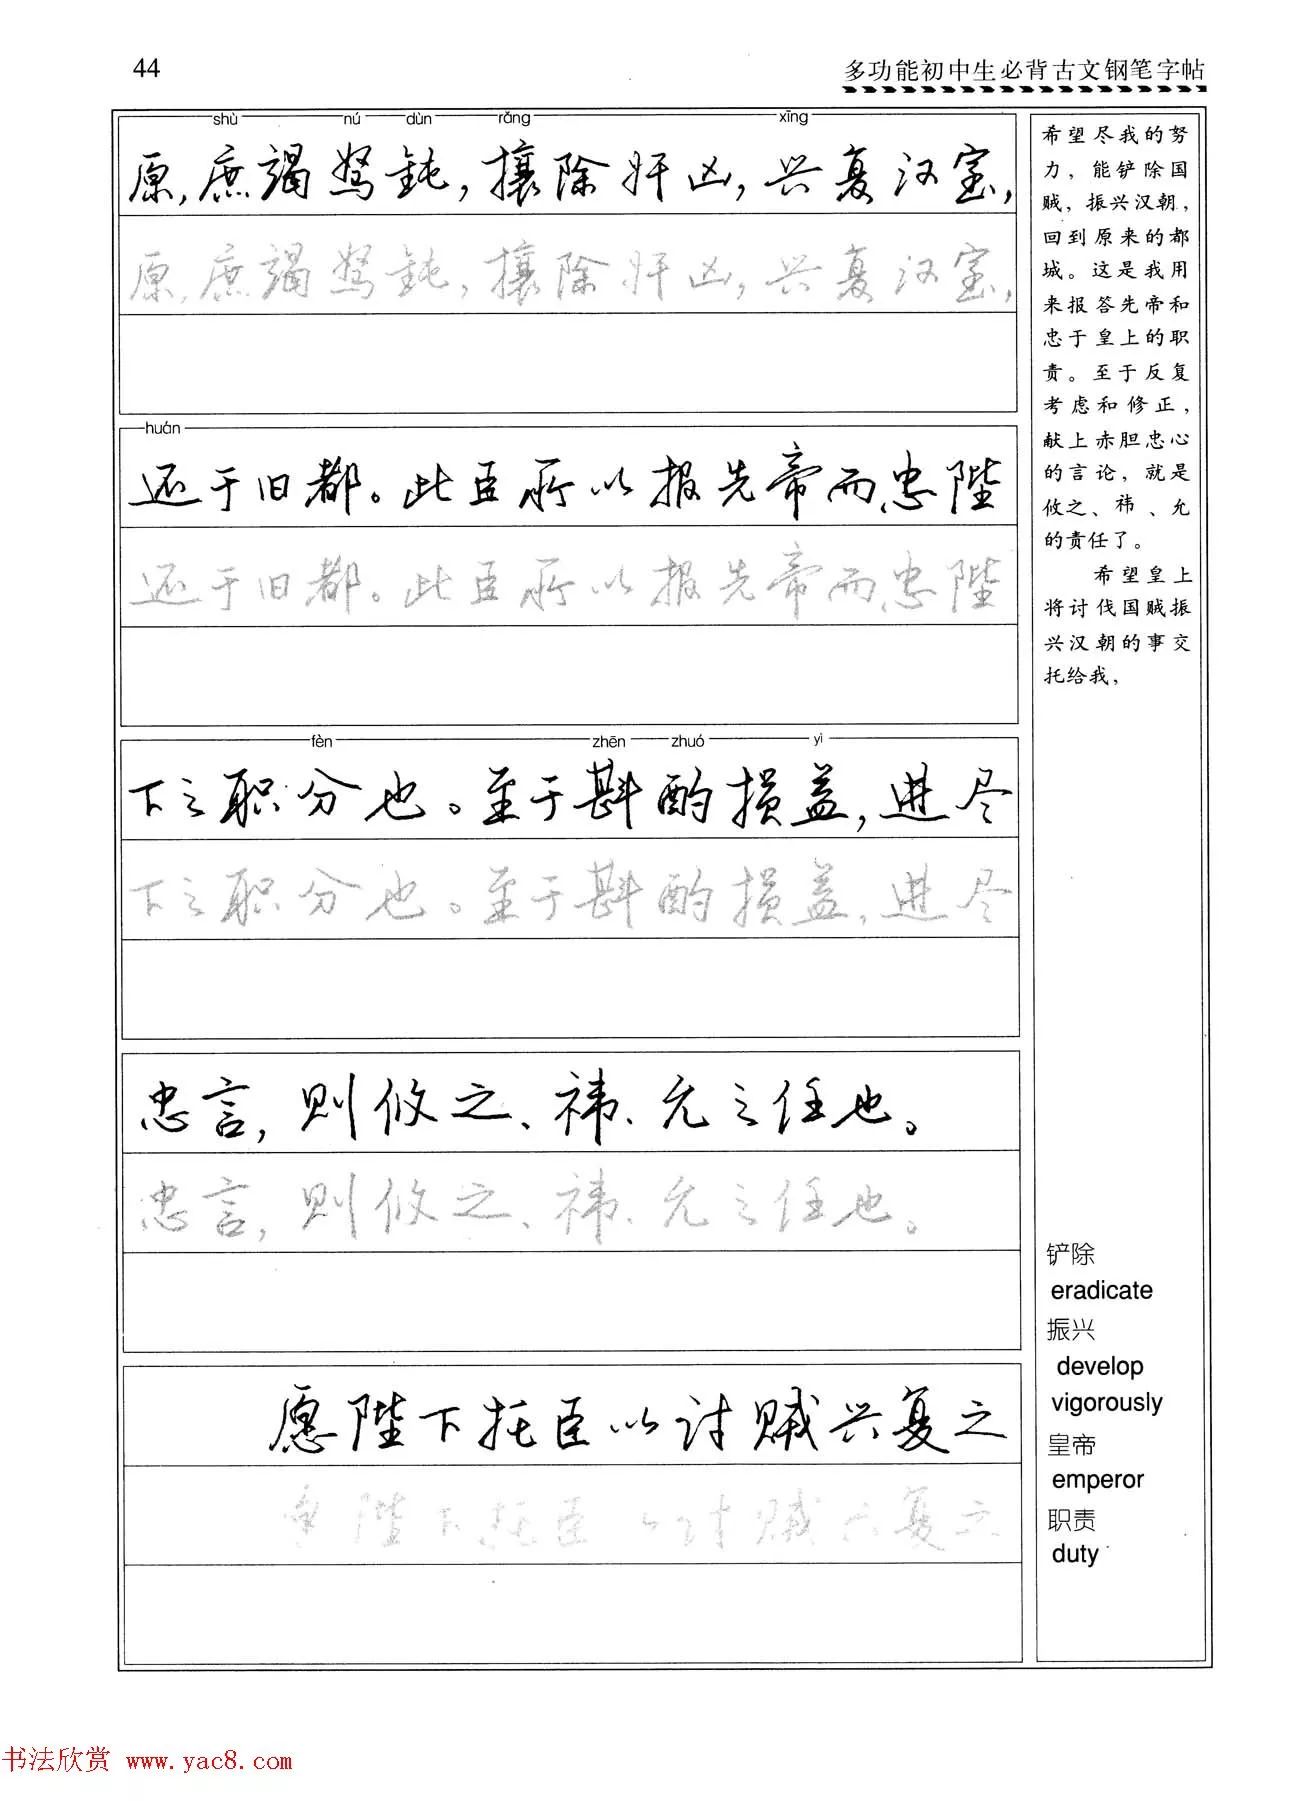 44
多功能初中生必背古文钢笔字帖
shù nú dùn rǎng xīng
原,庶竭驽钝,攘除奸凶,兴复汉室,
原,庶竭驽钝,攘除奸凶,兴复汉室,
huán
还于旧都。此臣所以报先帝而忠陛
还于旧都。此臣所以报先帝而忠陛
fèn zhēn zhuó yì
下之职分也。至于斟酌损益,进尽
下之职分也。至于斟酌损益,进尽
忠言,则攸之、祎、允之任也。
忠言,则攸之、祎、允之任也。
愿陛下托臣以讨贼兴复之
愿陛下托臣以讨贼兴复之
希望尽我的努
力，能铲除国
贼，振兴汉朝，
回到原来的都
城。这是我用
来报答先帝和
忠于皇上的职
责。至于反复
考虑和修正，
献上赤胆忠心
的言论，就是
攸之、祎、允
的责任了。
希望皇上
将讨伐国贼振
兴汉朝的事交
托给我，
铲除
eradicate
振兴
develop
vigorously
皇帝
emperor
职责
duty
书法欣赏 www.yac8.com